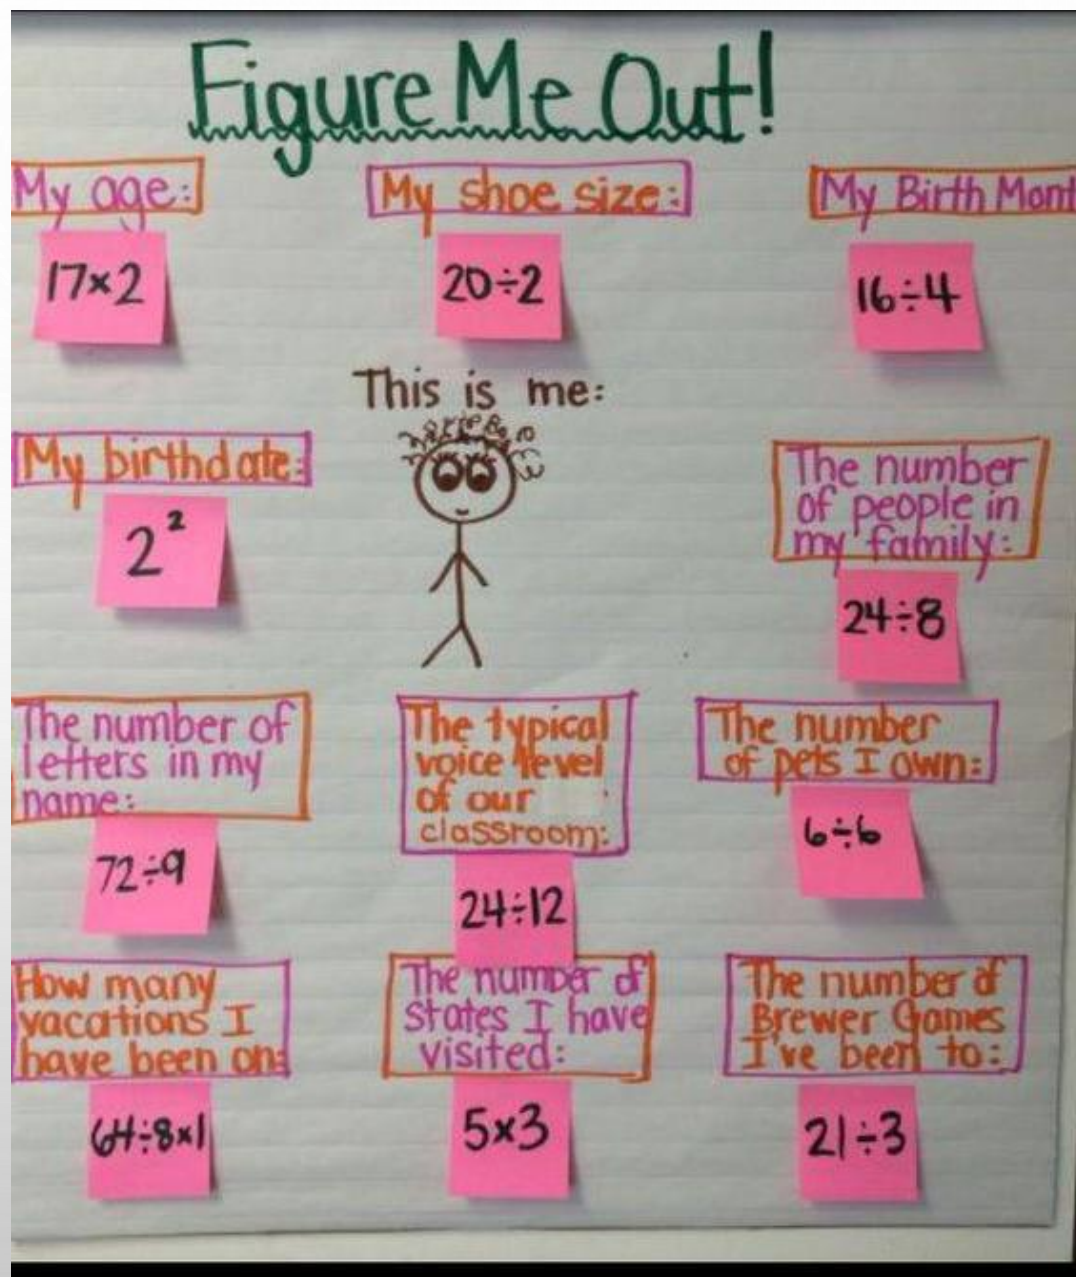 Figure Me Out!
My age:
17×2
My shoe size:
20÷2
My Birth Mont
16÷4
This is me:
My birthdate:
2²
The number
of people in
my family:
24÷8
The number of
letters in my
name:
72÷9
The typical
voice level
of our
classroom:
24÷12
The number
of pets I own:
6÷6
How many
vacations I
have been on:
64÷8×1
The number of
states I have
visited:
5×3
The number of
Brewer Games
I've been to:
21÷3